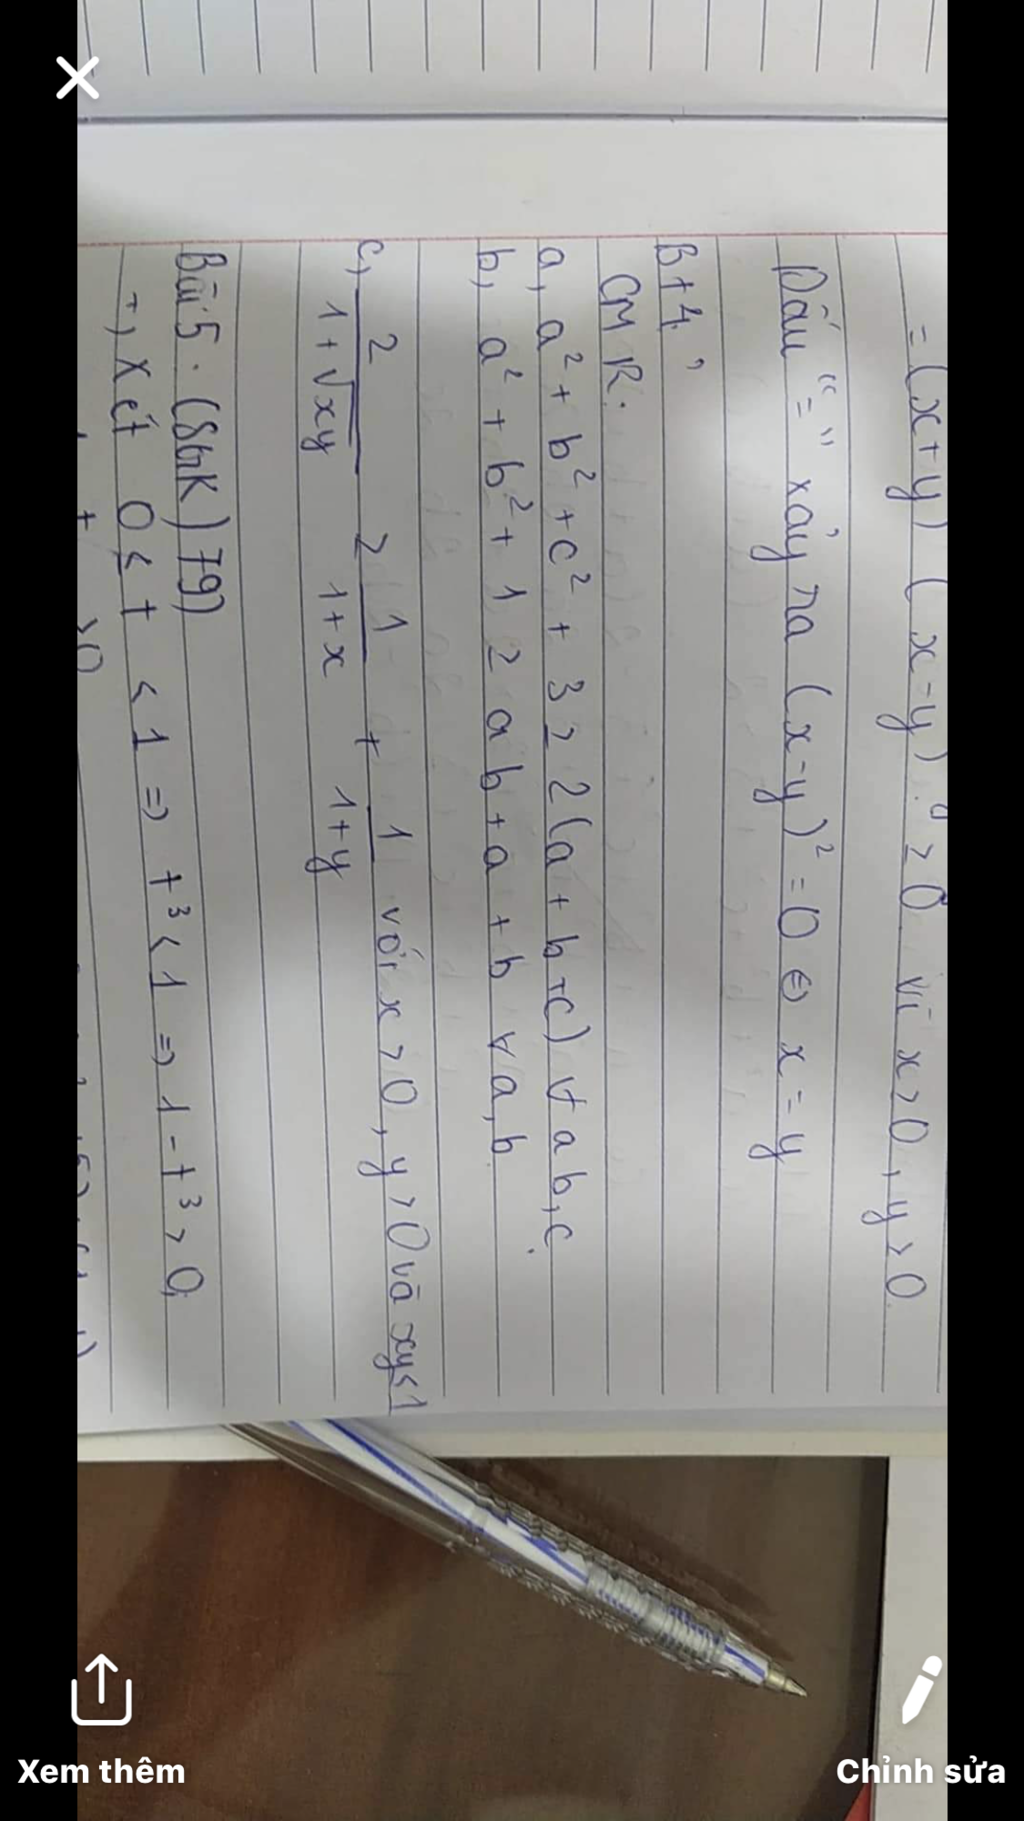 = (x+y) (x-y)² ≥ 0 vì x>0, y>0
Dấu "=" xảy ra (x-y)² = 0 ⇔ x = y
B+4,
CMR.
a, a² + b² + c² + 3 ≥ 2(a + b+c) ∀ a b, c
b, a² + b² + 1 ≥ ab + a + b ∀ a, b
c, 2/(1+√xy) ≥ 1/(1+x) + 1/(1+y) với x > 0, y > 0 và xy<1
Bài 5. (SGK) 79)
+, Xét 0 ≤ t < 1 => t³ < 1 => 1 - t³ > 0,
Xem thêm
Chỉnh sửa